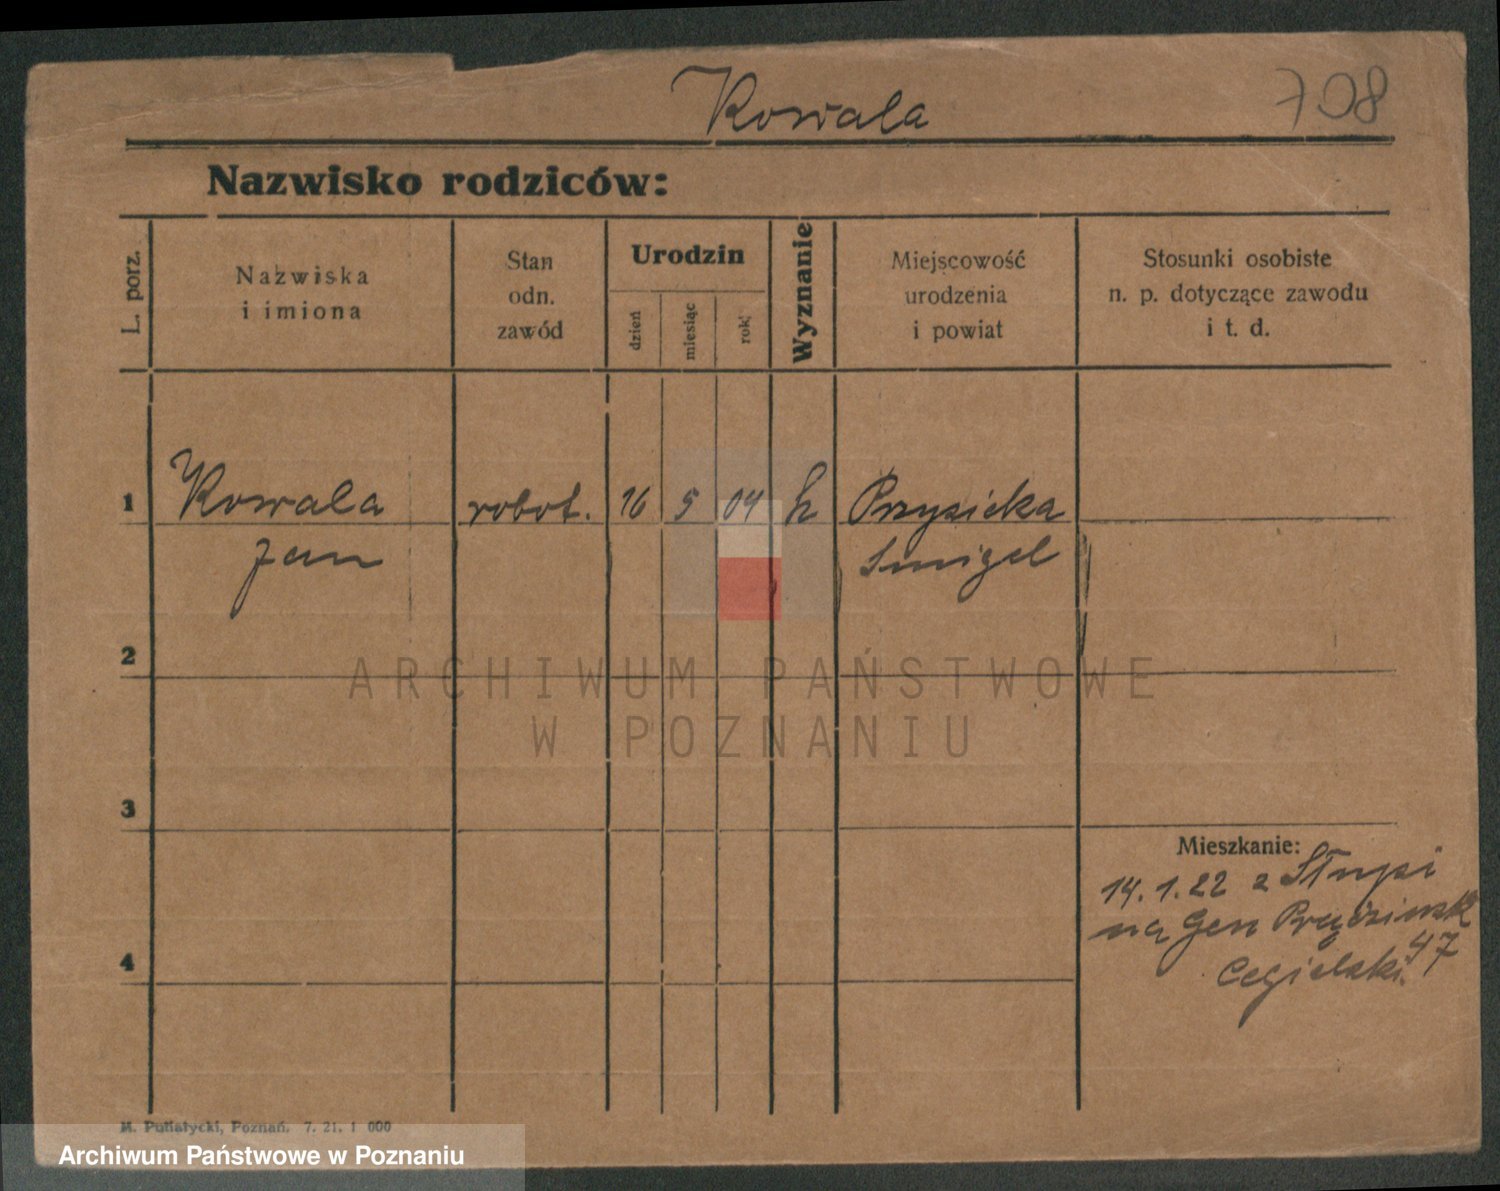 Kowala
708
Nazwisko rodziców:
L. porz.
Nazwiska
i imiona
Stan
odn.
zawód
Urodzin
dzień
miesiąc
rok
Wyznanie
Miejscowość
urodzenia
i powiat
Stosunki osobiste
n. p. dotyczące zawodu
i t. d.
1
Kowala robot. 16 5 04 k Przysieka
Jan Smigel
2
3
4
Mieszkanie:
14.1.22 z Słupi
na Gen Prądzinsk
47
Cegielski.
M. Putiatycki, Poznań. 7. 21. 1 000
ARCHIWUM PAŃSTWOWE
W POZNANIU
Archiwum Państwowe w Poznaniu